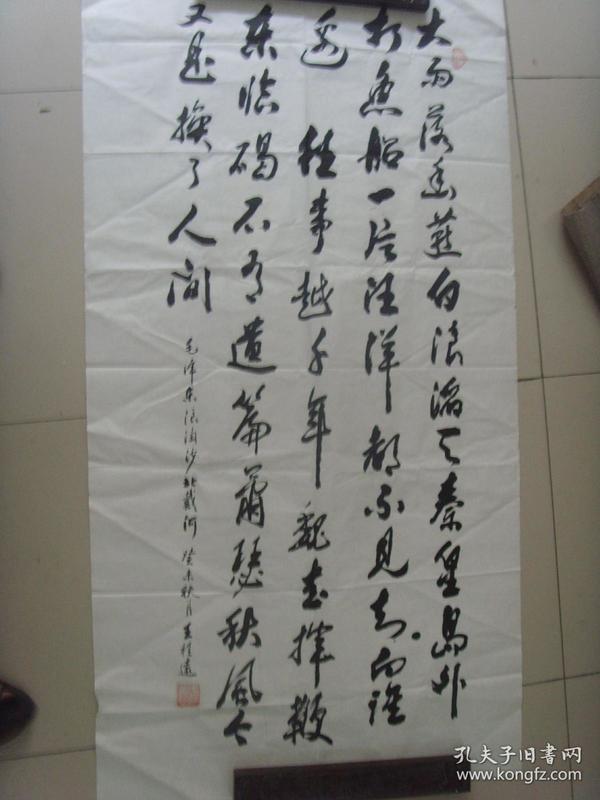 大雨落幽燕白浪滔天秦皇岛外
打鱼船一片汪洋都不见知向谁
边 往事越千年魏武挥鞭
东临碣石有遗篇萧瑟秋风今
又是换了人间
毛泽东浪淘沙北戴河 癸未秋月
孔夫子旧书网
www.kongfz.com